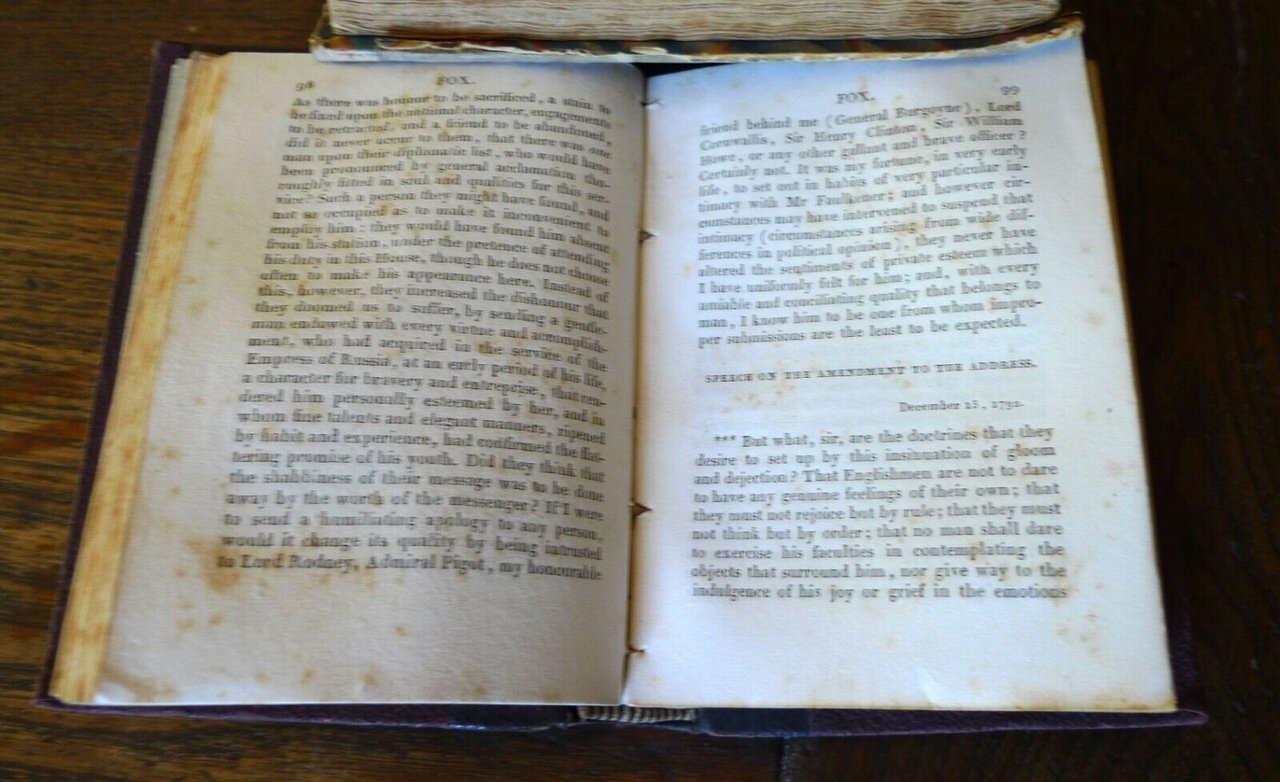 98
FOX.
As there was honour to be sacrificed, a stain to
be fixed upon the national character, engagements
to be retracted, and a friend to be abandoned,
did it never occur to them, that there was one
man upon their diplomatic list, who would have
been pronounced by general acclamation tho-
roughly fitted in soul and qualities for this ser-
vice? Such a person they might have found, and
not so occupied as to make it inconvenient to
employ him: they would have found him absent
from his station, under the pretence of attending
his duty in this House, though he does not choose
often to make his appearance here. Instead of
this, however, they increased the dishonour that
they doomed us to suffer, by sending a gentle-
man endowed with every virtue and accomplish-
ment, who had acquired in the service of the
Empress of Russia, at an early period of his life,
a character for bravery and entreprise, that ren-
dered him personally esteemed by her, and in
whom fine talents and elegant manners, ripened
by habit and experience, had confirmed the flat-
tering promise of his youth. Did they think that
the shabbiness of their message was to be done
away by the worth of the messenger? If I were
to send a humiliating apology to any person,
would it change its quality by being intrusted
to Lord Rodney, Admiral Pigot, my honourable
FOX.
99
friend behind me (General Burgoyne), Lord
Cornwallis, Sir Henry Clinton, Sir William
Howe, or any other gallant and brave officer?
Certainly not. It was my fortune, in very early
life, to set out in habits of very particular in-
timacy with Mr Faulkner; and however cir-
cumstances may have intervened to suspend that
intimacy (circumstances arising from wide dif-
ferences in political opinion), they never have
altered the sentiments of private esteem which
I have uniformly felt for him; and, with every
amiable and conciliating quality that belongs to
man, I know him to be one from whom impro-
per submissions are the least to be expected.
SPEECH ON THE AMENDMENT TO THE ADDRESS.
December 15, 1792.
*** But what, sir, are the doctrines that they
desire to set up by this insinuation of gloom
and dejection? That Englishmen are not to dare
to have any genuine feelings of their own; that
they must not rejoice but by rule; that they must
not think but by order; that no man shall dare
to exercise his faculties in contemplating the
objects that surround him, nor give way to the
indulgence of his joy or grief in the emotions